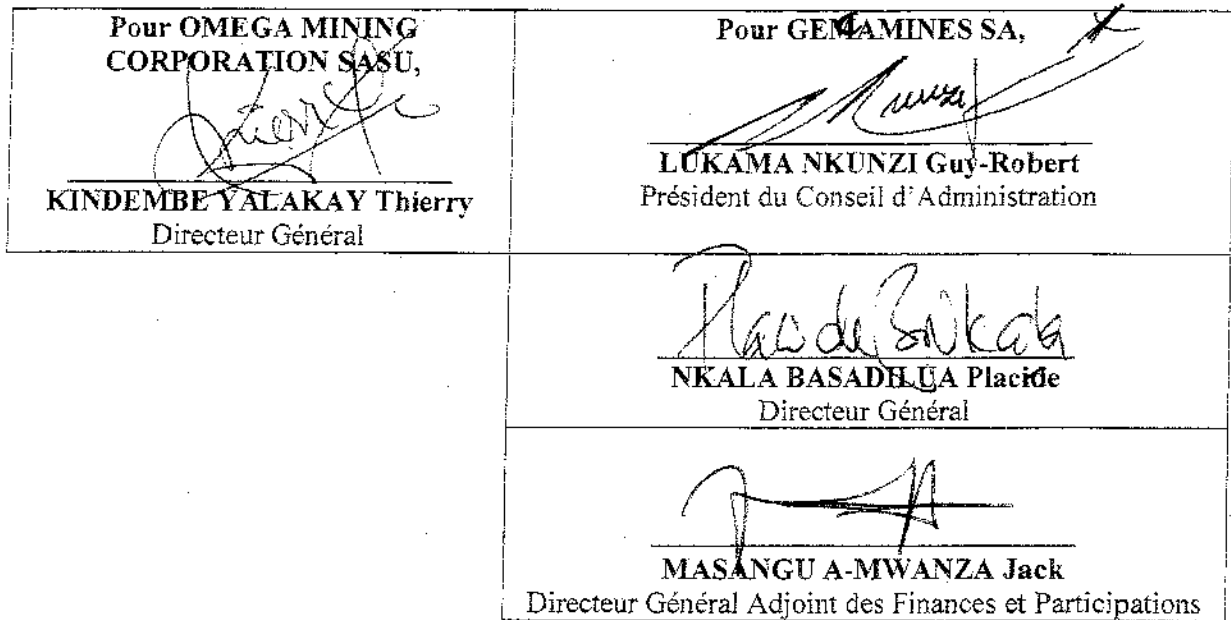 Pour OMEGA MINING
CORPORATION SASU,
KINDEMBE YALAKAY Thierry
Directeur Général
Pour GEMAMINES SA,
LUKAMA NKUNZI Guy-Robert
Président du Conseil d'Administration
Placide
NKALA BASADILUA Placide
Directeur Général
MASANGU A-MWANZA Jack
Directeur Général Adjoint des Finances et Participations